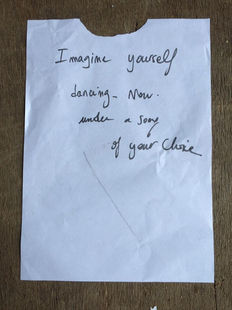 Imagine yourself
dancing - Now.
under a song
of your choice